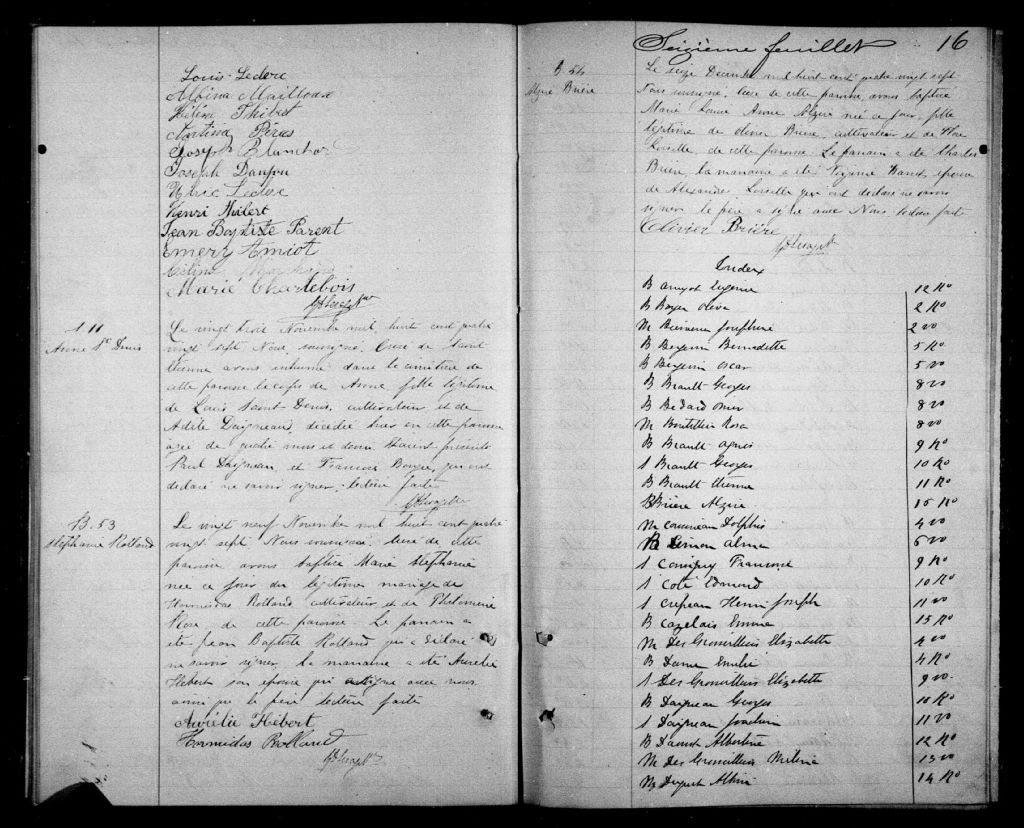 Louis Leclerc
Albina Mailloux
Hélène Thibet
Joseph
Joseph Danjou
Marie Leclerc
Henri Hébert
Jean Baptiste Parent
Emery Amiot
Célina
Marie Charlebois
S 11
Anne St Denis
Le vingt trois Novembre mil huit cent quatre
vingt sept Nous, soussigné, Curé de Saint
Etienne avons inhumé dans le cimetière de
cette paroisse le corps de Anne, fille légitime
de Louis Saint Denis, cultivateur et de
Adèle Daigneau, décédée hier en cette paroisse
agée de quatre mois et demi. Etaient présents
Paul Daigneau, et François Bougie, qui ont
déclaré ne savoir signer. lecture faite
B. 53
Stéphanie Rolland
Le vingt neuf Novembre mil huit cent quatre
vingt sept Nous soussigné, Curé de cette
paroisse avons baptisé Marie Stéphanie
née ce jour du légitime mariage de
Hormisdas Rolland, cultivateur et de Philomène
Rose de cette paroisse. Le parrain a
été Jean Baptiste Rolland qui a déclaré
ne savoir signer, la marraine a été Aurélie
Hébert son épouse qui a signé avec nous
ainsi que le père lecture faite
Aurélie Hébert
Hormidas Rolland
Seizième feuillet 16
B. 54
Alzire Brière
Le seize Decembre mil huit cent quatre vingt sept
Nous soussigné, Curé de cette paroisse, avons baptisé
Marie Louise Anne Alzire née ce jour, fille
légitime de Olivier Brière, cultivateur et de
Loiselle, de cette paroisse. Le parrain a été Charles
Brière, la marraine a été épouse
de Alexandre Loiselle qui ont déclaré ne savoir
signer le père a signé avec Nous lecture faite
Olivier Brière
Index
B Amyot Eugenie 12 Ro
B Boyer Oliva 2 Ro
M Josephine 2 vo
B Bergevin Bernadette 5 Ro
B Bergevin Oscar 5 vo
B Brault Georges 8 vo
B Bedard Omer 8 vo
M Boutillier Rosa 8 vo
B Brault Agnes 9 Ro
S Brault Georges 10 Ro
B Brault Etienne 11 Ro
B Brière Alzire 16 Ro
M Dolphis 4 vo
B Alma 6 vo
S Francois 9 Ro
S Coté Edmond 10 Ro
S Crepeau Henri Joseph 11 vo
B Cazelais Emma 15 Ro
M Des Groseilliers Elizabette 4 vo
B Emilie 4 Ro
S Des Groseilliers Elizabette 9 vo
B Daigneau Georges 10 Ro
S Daigneau Joachim 11 vo
B Daoust Albertine 12 Ro
M Des Groseilliers 13 vo
M 14 Ro